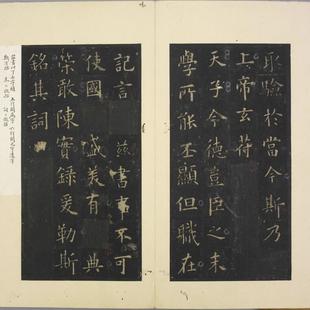 取驗於當今斯乃
上帝玄符
天子令德豈臣之末
學所能丕顯但職在
記言 茲書事不可
使國 盛美有 典
策敢陳實錄爰勒斯
銘其詞